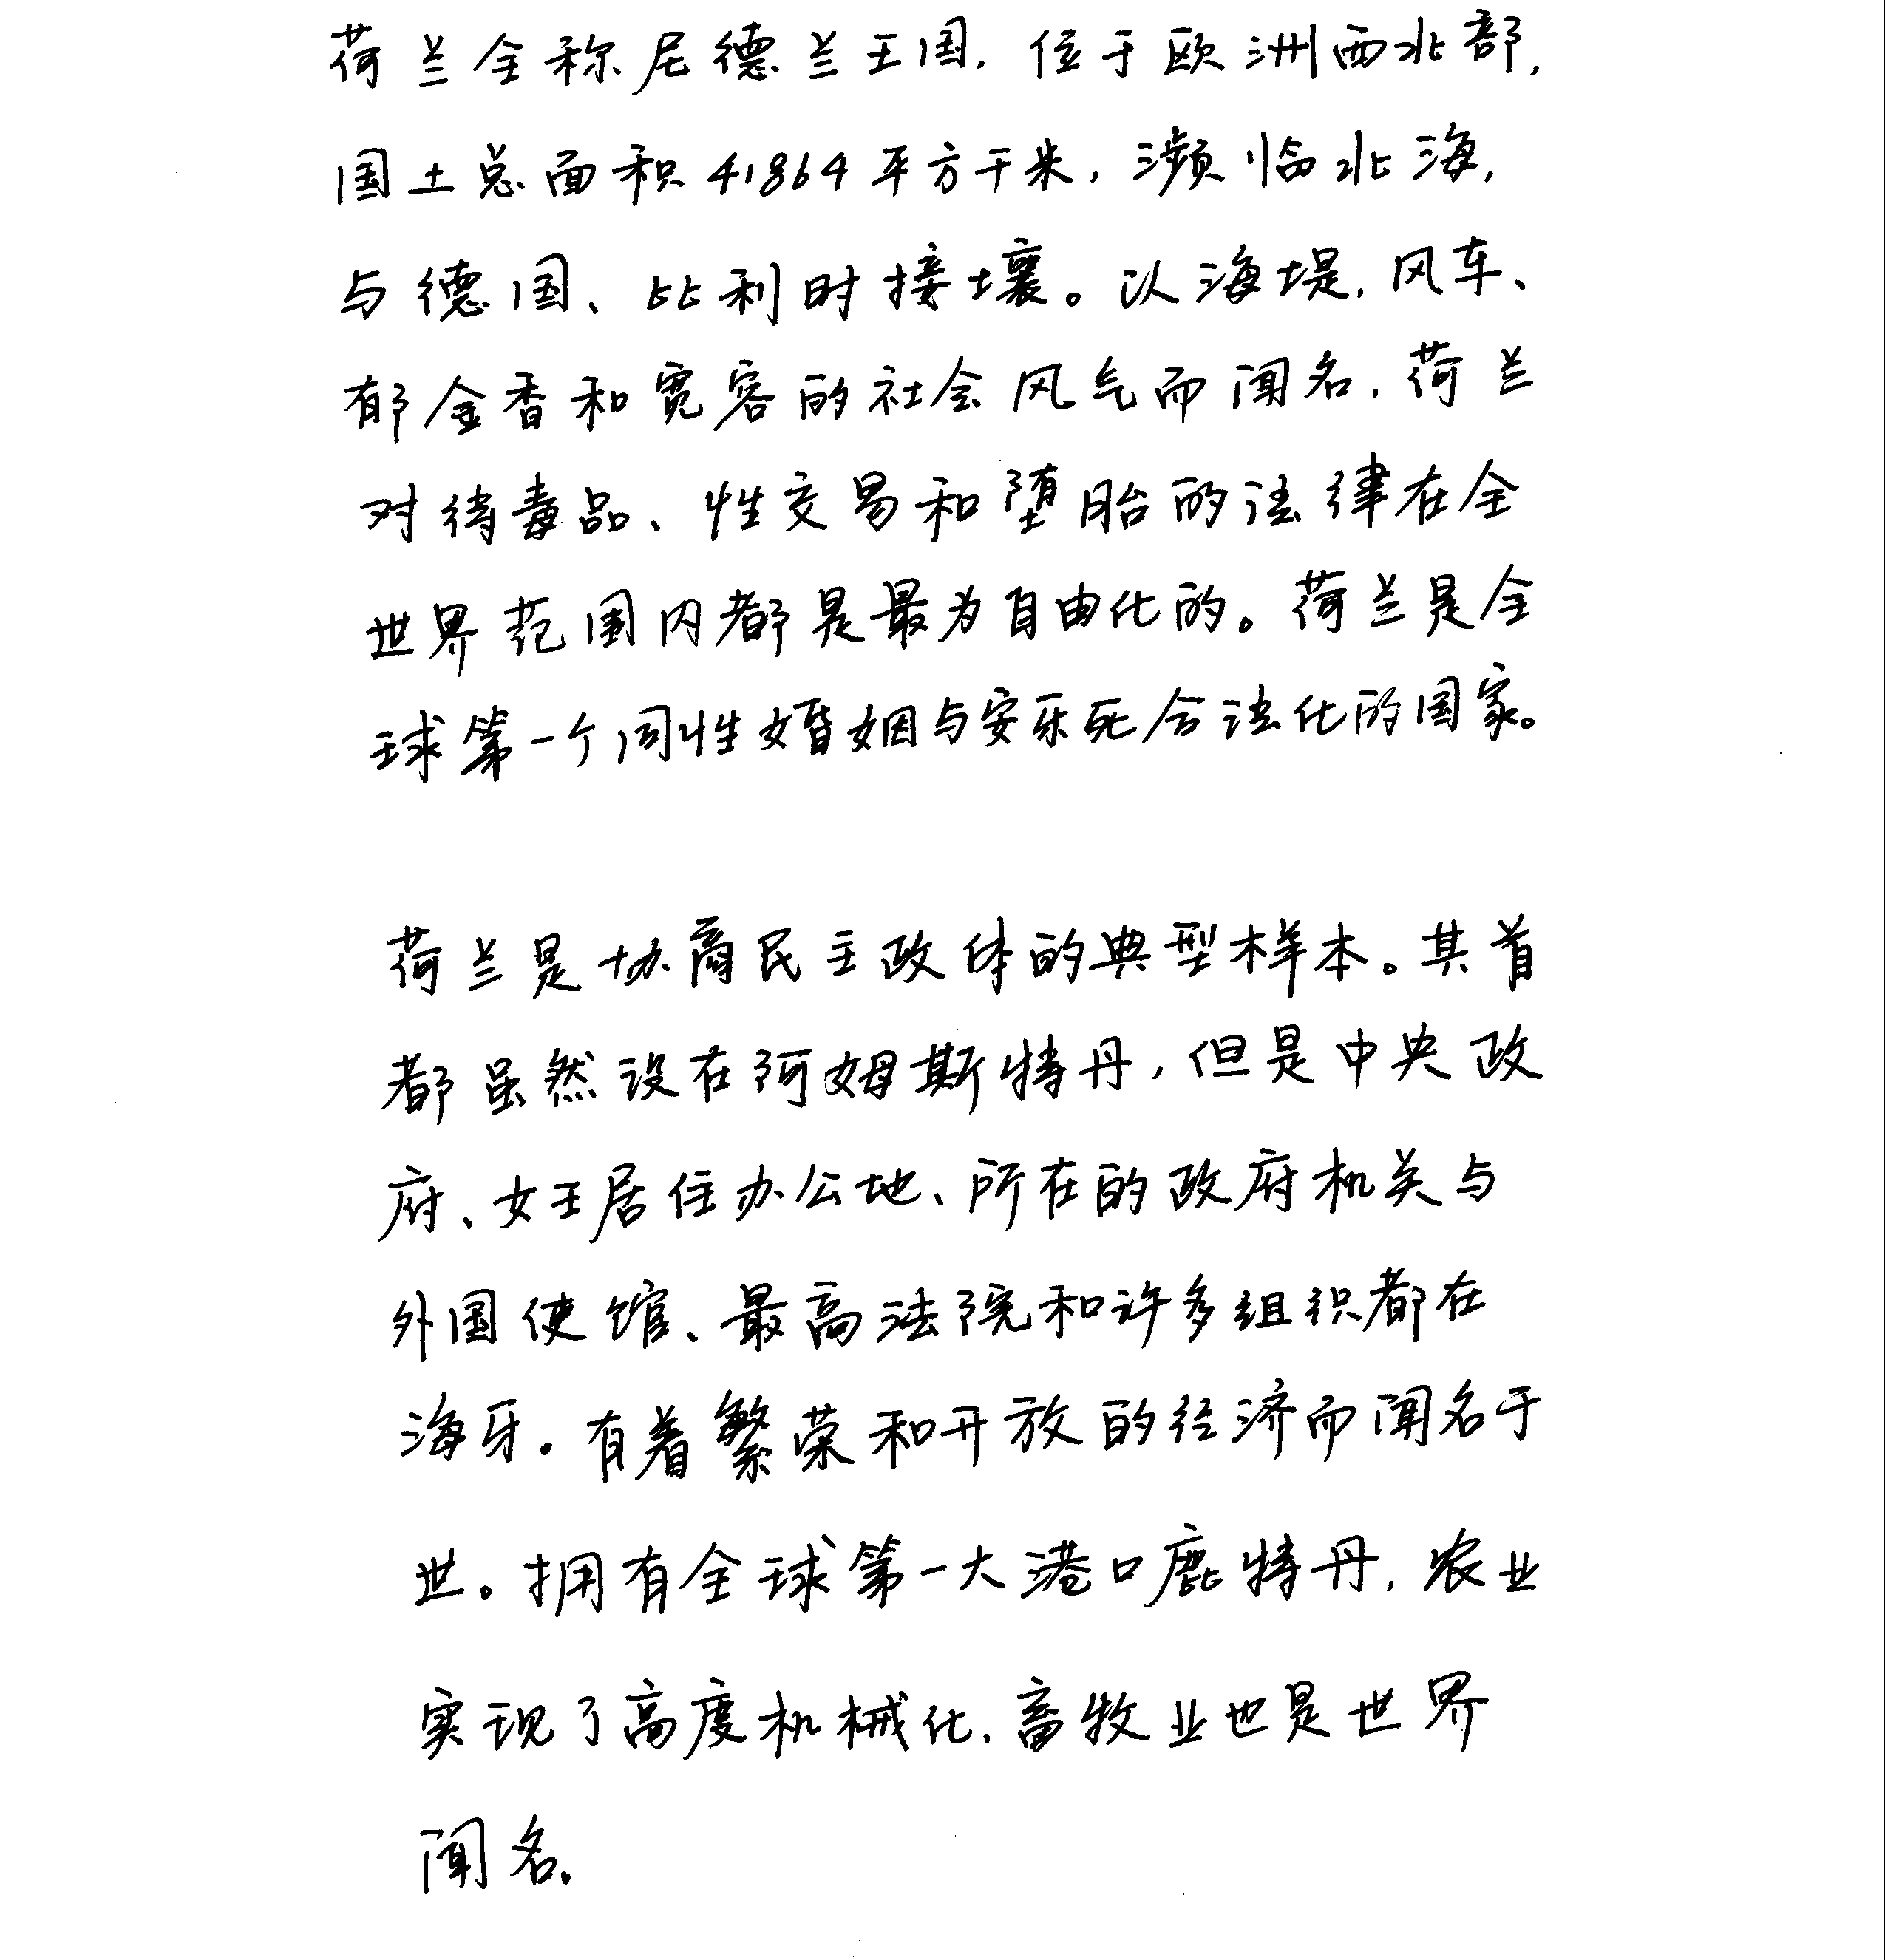 荷兰全称尼德兰王国,位于欧洲西北部,
国土总面积41864平方千米,濒临北海,
与德国、比利时接壤。以海堤,风车、
郁金香和宽容的社会风气而闻名,荷兰
对待毒品、性交易和堕胎的法律在全
世界范围内都是最为自由化的。荷兰是全
球第一个同性婚姻与安乐死合法化的国家。
荷兰是协商民主政体的典型样本。其首
都虽然设在阿姆斯特丹,但是中央政
府、女王居住办公地、所在的政府机关与
外国使馆、最高法院和许多组织都在
海牙。有着繁荣和开放的经济而闻名于
世。拥有全球第一大港口鹿特丹,农业
实现了高度机械化,畜牧业也是世界
闻名.